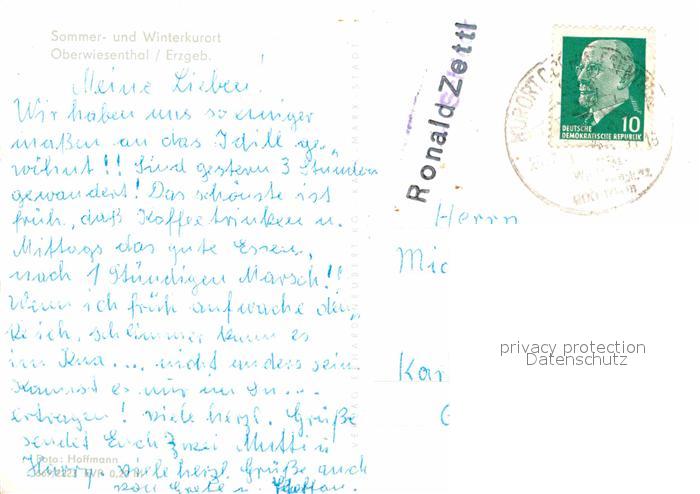 Sommer- und Winterkurort
Oberwiesenthal / Erzgeb.
Meine Lieben!
Wir haben uns so einiger
maßen an das Idill ge-
wöhnt!! Sind gestern 3 Stunden
gewandert! Das schönste ist
früh, das Kaffeetrinken u.
Mittags das gute Essen,
nach 1 Stündigen Marsch!!
Wenn ich früh aufwache den
ke ich, schlimmer kann es
im Kna.... nicht anders sein.
Kannst es nur
ertragen! viele herzl. Grüße
sendet Euch 2 zwei Mutti u
Harry. viele herzl. Grüße auch
von Grete u.
Foto: Hoffmann
Ronald Zettl
KURORT
DEUTSCHE
DEMOKRATISCHE REPUBLIK
10
Herrn
Mic
Kar
privacy protection
Datenschutz